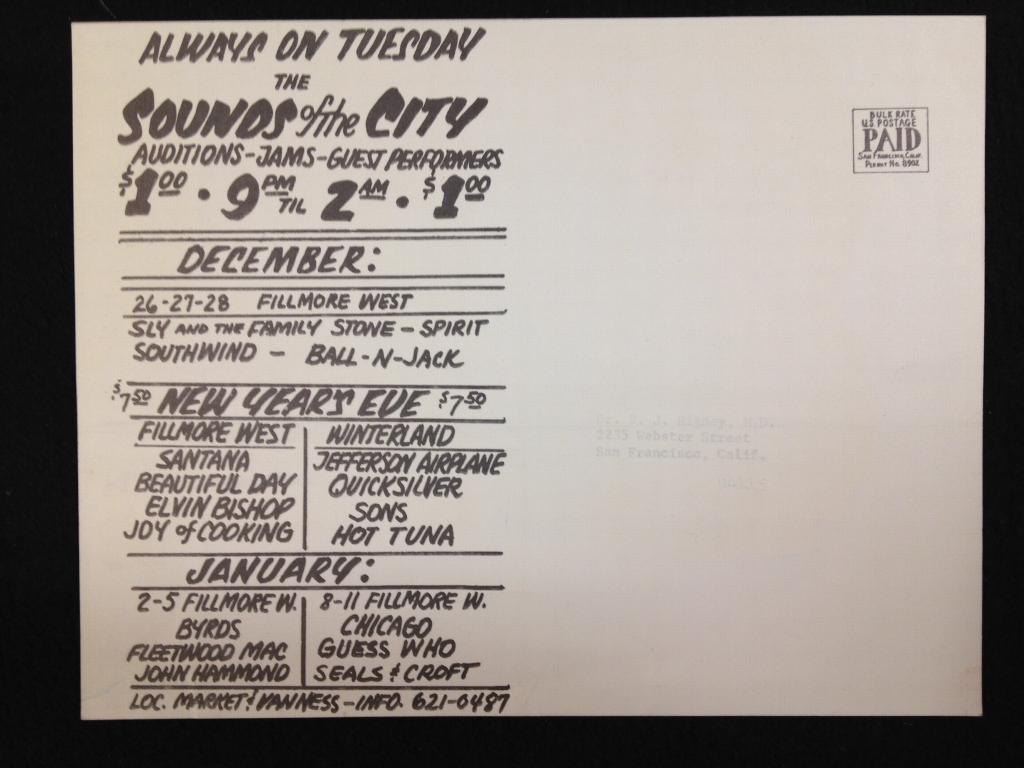 ALWAYS ON TUESDAY
THE
SOUNDS of the CITY
AUDITIONS-JAMS-GUEST PERFORMERS
$1.00 · 9 PM TIL 2 AM · $1.00
DECEMBER:
26-27-28 FILLMORE WEST
SLY AND THE FAMILY STONE - SPIRIT
SOUTHWIND - BALL-N-JACK
$7.50 NEW YEAR'S EVE $7.50
FILLMORE WEST
SANTANA
BEAUTIFUL DAY
ELVIN BISHOP
JOY of COOKING
WINTERLAND
JEFFERSON AIRPLANE
QUICKSILVER
SONS
HOT TUNA
JANUARY:
2-5 FILLMORE W.
BYRDS
FLEETWOOD MAC
JOHN HAMMOND
8-11 FILLMORE W.
CHICAGO
GUESS WHO
SEALS & CROFT
LOC. MARKET & VAN NESS-INFO. 621-0487
BULK RATE
U.S. POSTAGE
PAID
SAN FRANCISCO, CALIF.
PERMIT No. 8902
Dr. J. M.D.
2235 Webster Street
San Francisco, Calif.